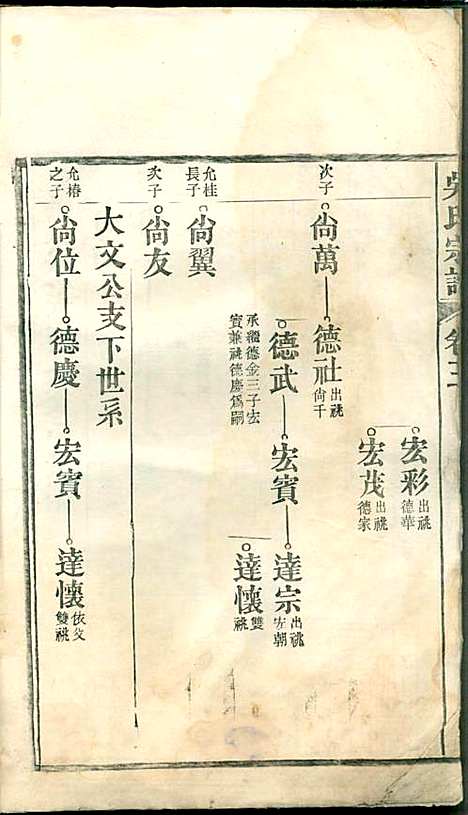 吳氏宗譜 卷三
宏彩 出祧德華
宏茂 出祧德家
次子 尙萬 德社 出祧尙千
德武 宏賓 達宗 出祧宏朝
承繼德金三子宏賓兼祧德慶爲嗣
達懷 雙祧
允桂長子 尙翼
次子 尙友
大文公支下世系
允椿之子 尙位 德慶 宏賓 達懷 依父雙祧